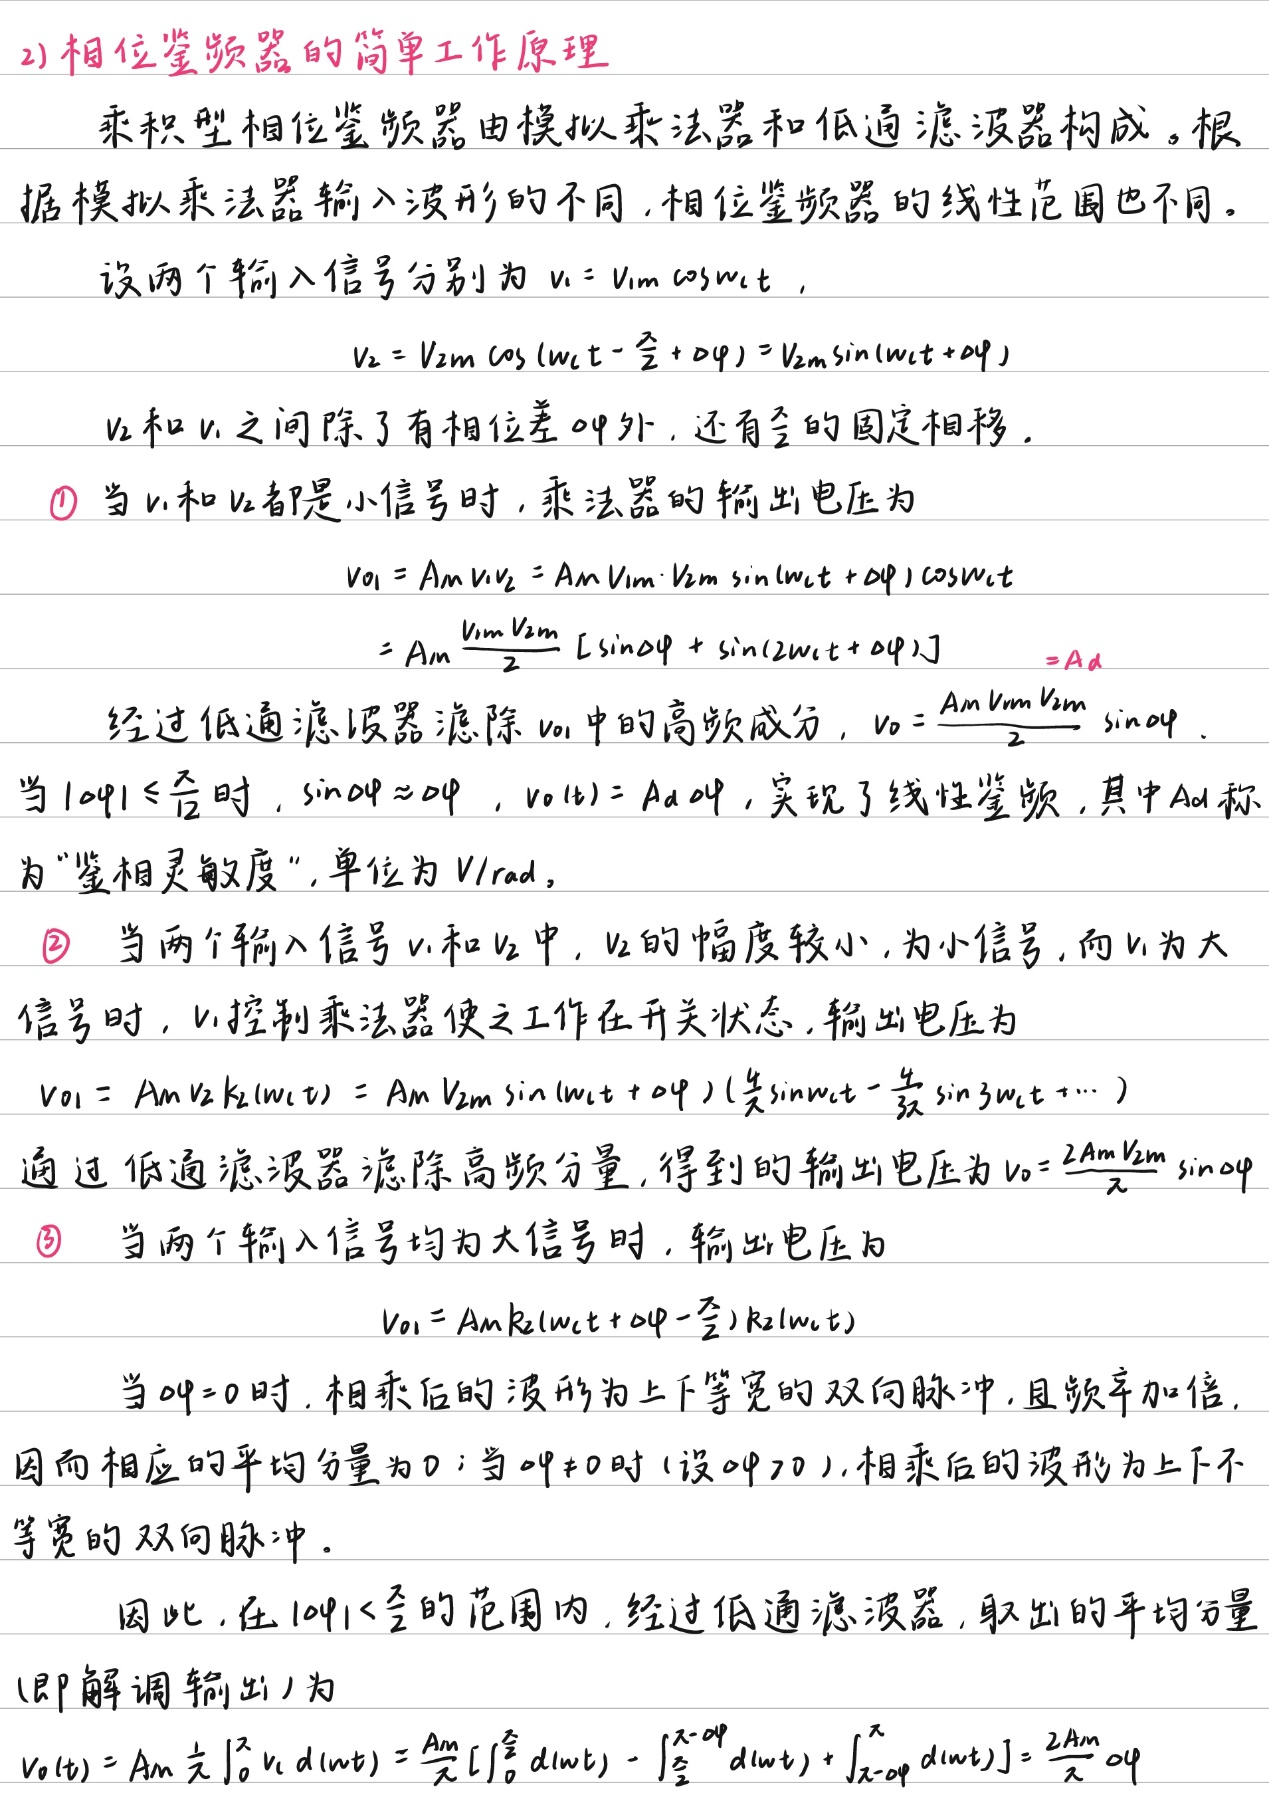 2) 相位鉴频器的简单工作原理
乘积型相位鉴频器由模拟乘法器和低通滤波器构成。根
据模拟乘法器输入波形的不同,相位鉴频器的线性范围也不同。
设两个输入信号分别为 v₁ = V₁m cosωct ,
v₂ = V₂m cos(ωct - π/2 + Δφ) = V₂m sin(ωct + Δφ)
v₂和v₁之间除了有相位差Δφ外,还有π/2的固定相移.
① 当v₁和v₂都是小信号时,乘法器的输出电压为
vo₁ = Am v₁v₂ = Am V₁m·V₂m sin(ωct + Δφ) cosωct
= Am V₁mV₂m/2 [sinΔφ + sin(2ωct + Δφ)]
=Ad
经过低通滤波器滤除vo₁中的高频成分, vo = AmV₁mV₂m/2 sinΔφ.
当|Δφ| ≤ π/12时, sinΔφ ≈ Δφ , vo(t) = AdΔφ,实现了线性鉴频,其中Ad称
为“鉴相灵敏度”,单位为V/rad。
② 当两个输入信号v₁和v₂中,v₂的幅度较小,为小信号,而v₁为大
信号时,v₁控制乘法器使之工作在开关状态,输出电压为
vo₁ = Am v₂ k₂(ωct) = Am V₂m sin(ωct + Δφ)(4/π sinωct - 4/3π sin3ωct + ⋯)
通过低通滤波器滤除高频分量,得到的输出电压为vo = 2AmV₂m/π sinΔφ
③ 当两个输入信号均为大信号时,输出电压为
vo₁ = Am k₂(ωct + Δφ - π/2) k₂(ωct)
当Δφ=0时,相乘后的波形为上下等宽的双向脉冲,且频率加倍,
因而相应的平均分量为0;当Δφ≠0时(设Δφ>0),相乘后的波形为上下不
等宽的双向脉冲.
因此,在|Δφ|<π/2的范围内,经过低通滤波器,取出的平均分量
(即解调输出)为
vo(t) = Am 1/π ∫₀^π vc d(ωt) = Am/π [∫₀^(π/2) d(ωt) - ∫_(π/2)^(π-Δφ) d(ωt) + ∫_(π-Δφ)^π d(ωt)] = 2Am/π Δφ